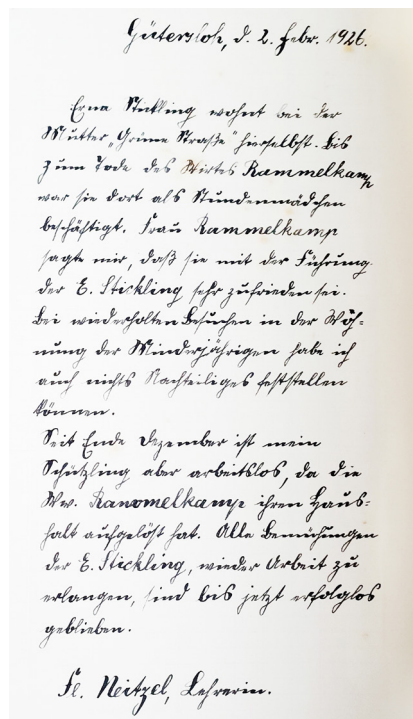 Gütersloh, d. 2. Febr. 1926.
Erna Stickling wohnt bei der
Mutter „Grüne Straße" hierselbst. Bis
zum Tode des Wirtes Rammelkamp
war sie dort als Stundenmädchen
beschäftigt. Frau Rammelkamp
sagte mir, daß sie mit der Führung
der E. Stickling sehr zufrieden sei.
Bei wiederholten Besuchen in der Woh-
nung der Minderjährigen habe ich
auch nichts Nachteiliges feststellen
können.
Seit Ende Dezember ist mein
Schützling aber arbeitslos, da die
Ww. Rammelkamp ihren Haus-
halt aufgelöst hat. Alle Bemühungen
der E. Stickling, wieder Arbeit zu
erlangen, sind bis jetzt erfolglos
geblieben.
Fr. Neitzel, Lehrerin.